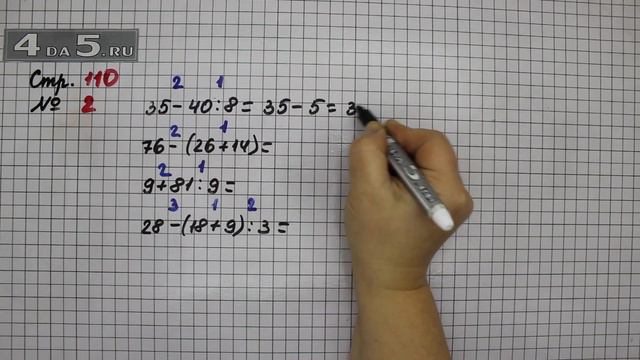 4 DA 5.RU
Стр. 110
№ 2
2 1
35 - 40 : 8 = 35 - 5 = 3
2 1
76 - (26 + 14) =
2 1
9 + 81 : 9 =
3 1 2
28 - (18 + 9) : 3 =